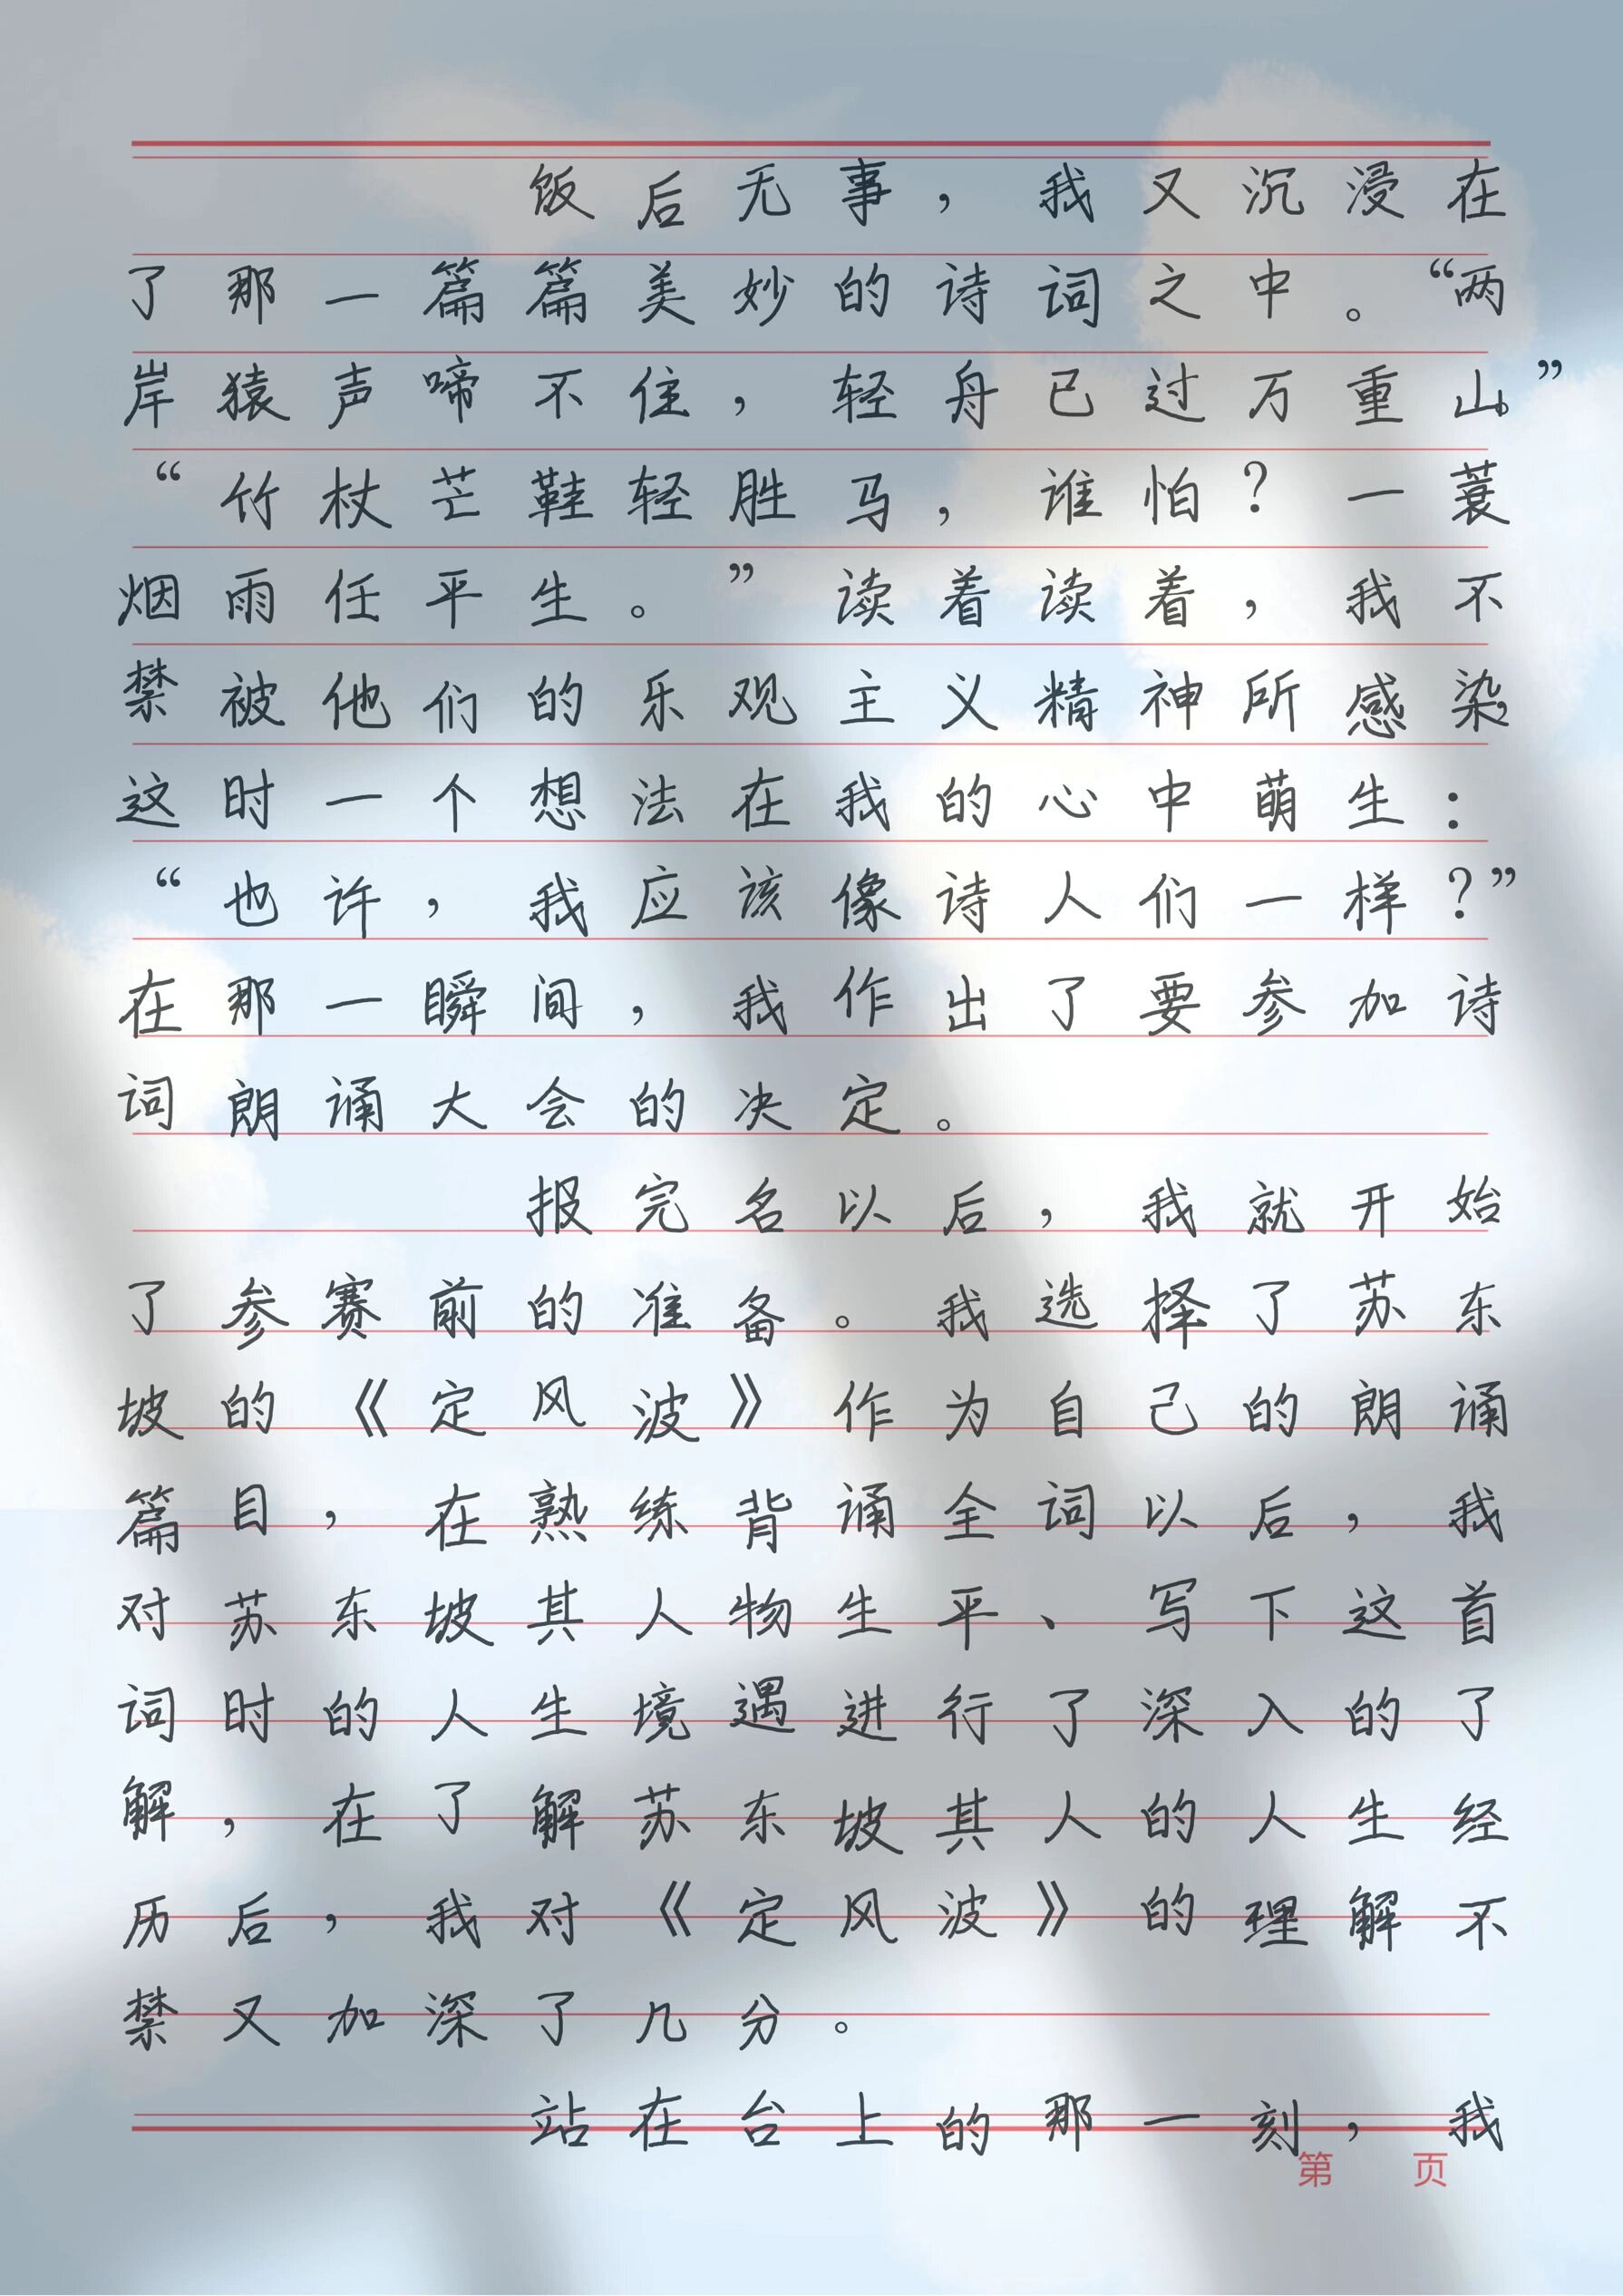 饭后无事，我又沉浸在
了那一篇篇美妙的诗词之中。“两
岸猿声啼不住，轻舟已过万重山。”
“竹杖芒鞋轻胜马，谁怕？一蓑
烟雨任平生。”读着读着，我不
禁被他们的乐观主义精神所感染，
这时一个想法在我的心中萌生：
“也许，我应该像诗人们一样？”
在那一瞬间，我作出了要参加诗
词朗诵大会的决定。
报完名以后，我就开始
了参赛前的准备。我选择了苏东
坡的《定风波》作为自己的朗诵
篇目，在熟练背诵全词以后，我
对苏东坡其人物生平、写下这首
词时的人生境遇进行了深入的了
解，在了解苏东坡其人的人生经
历后，我对《定风波》的理解不
禁又加深了几分。
站在台上的那一刻，我
第 页